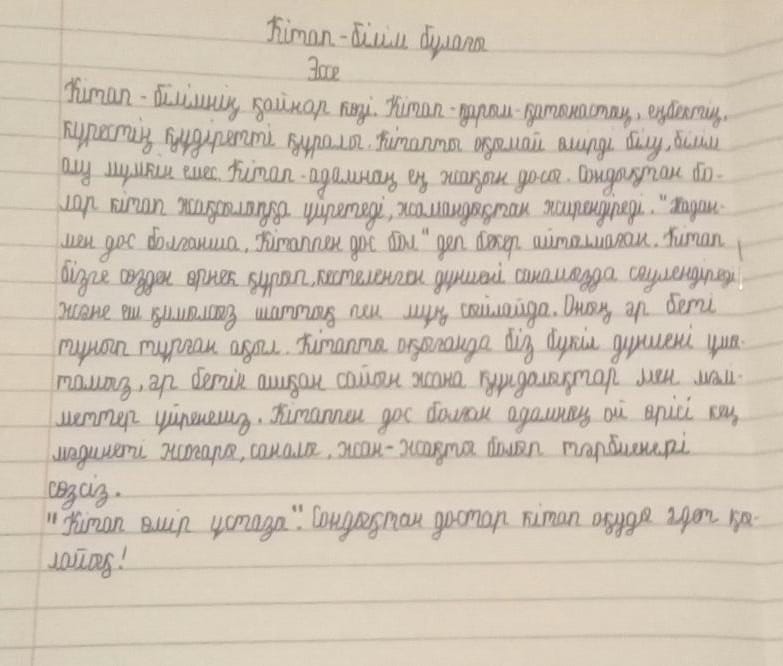 Кітап-білім бұлағы
Эссе
Кітап - білімнің қайнар көзі. Кітап-қарым-қатынастың, еңбектің,
күрестің құдіретті құралы. Кітапты оқымай өмірді білу, білім
алу мүмкін емес. Кітап-адамның ең жақын досы. Сондықтан бо-
лар кітап жақсылыққа үйретеді, жамандықтан жирендіреді. "Жадан-
мен дос болғанша, Кітаппен дос бол" деп бекер айтылмаған. Кітап
бізге сөзден өрнек құрап, кестеленген дүниені санамызда сәулендіреді
және еш қимылсыз шаттық пен мұң сыйлайды. Оның әр беті
тұнып тұрған ақыл. Кітапты оқығанда біз бүкіл дүниені ұмы-
тамыз, әр бетін ашқан сайын жаңа құндылықтар мен мәлі-
меттер үйренеміз. Кітаппен дос болған адамның ой өрісі кең
мәдинеті жоғары, саналы, жан-жақты болып тәрбиенері
сөзсіз.
"Кітап өмір ұстазы". Сондықтан достар кітап оқуды әдет қы-
лайық!